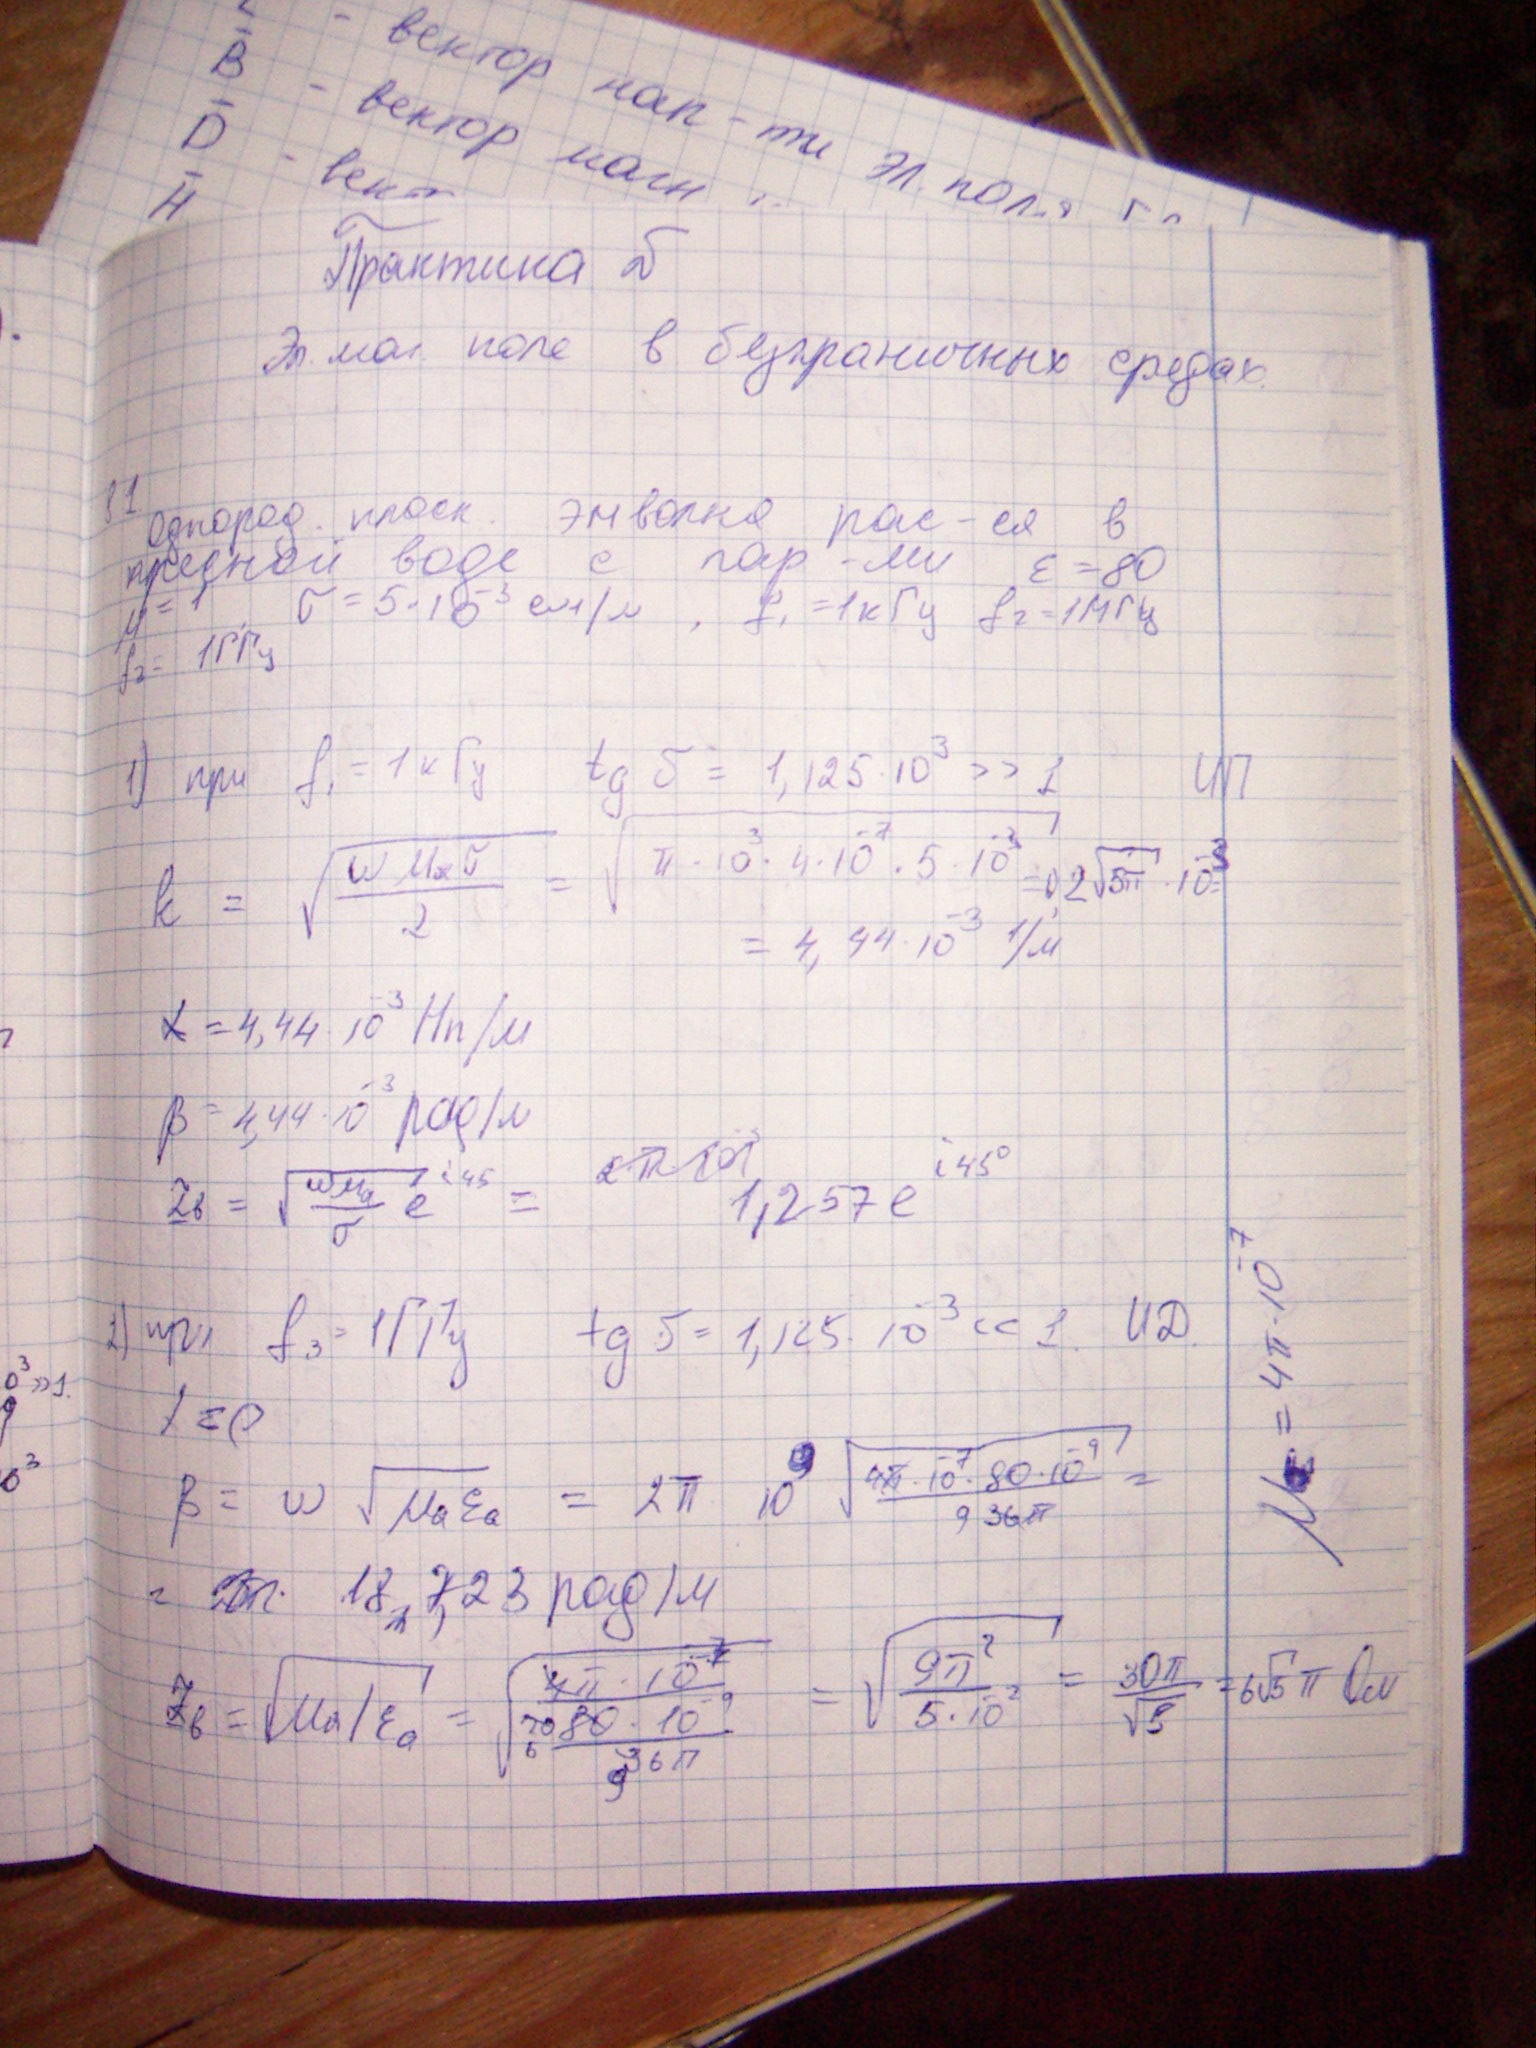 B̅ - вектор нап-ти эл. поля
D̅ - вектор магн
H̅ - вект
Практика 5
Эл. маг. поле в безграничных средах.
81
Однород. плоск. эм волна рас-ся в
пресной воде с пар-ми ε = 80
μ = 1 σ = 5·10⁻³ см/м, f₁ = 1кГц f₂ = 1МГц
f₂ = 1ГГц
1) при f₁ = 1кГц tg δ = 1,125·10³ >> 1 ИП
k = √(ωμₐσ/2) = √(π·10³·4·10⁻⁷·5·10⁻³) = 2√5π·10⁻³
= 4,44·10⁻³ 1/м
α = 4,44·10⁻³ Нп/м
β = 4,44·10⁻³ рад/м
Zв = √(ωμₐ/σ) e^(i45) = 1,257 e^(i45°)
2) при f₃ = 1ГГц tg δ = 1,125·10⁻³ << 1. ИД.
β = ω √(μₐεₐ) = 2π 10⁹ √(4π·10⁻⁷·80·10⁻⁹/36π) =
= 187,23 рад/м
Zв = √(μₐ/εₐ) = √(4π·10⁻⁷/(80·10⁻⁹/36π)) = √(9π²/5·10⁻²) = 30π/√5 = 6√5 π Ом
= 4π·10⁻⁷
0³ >> 1.